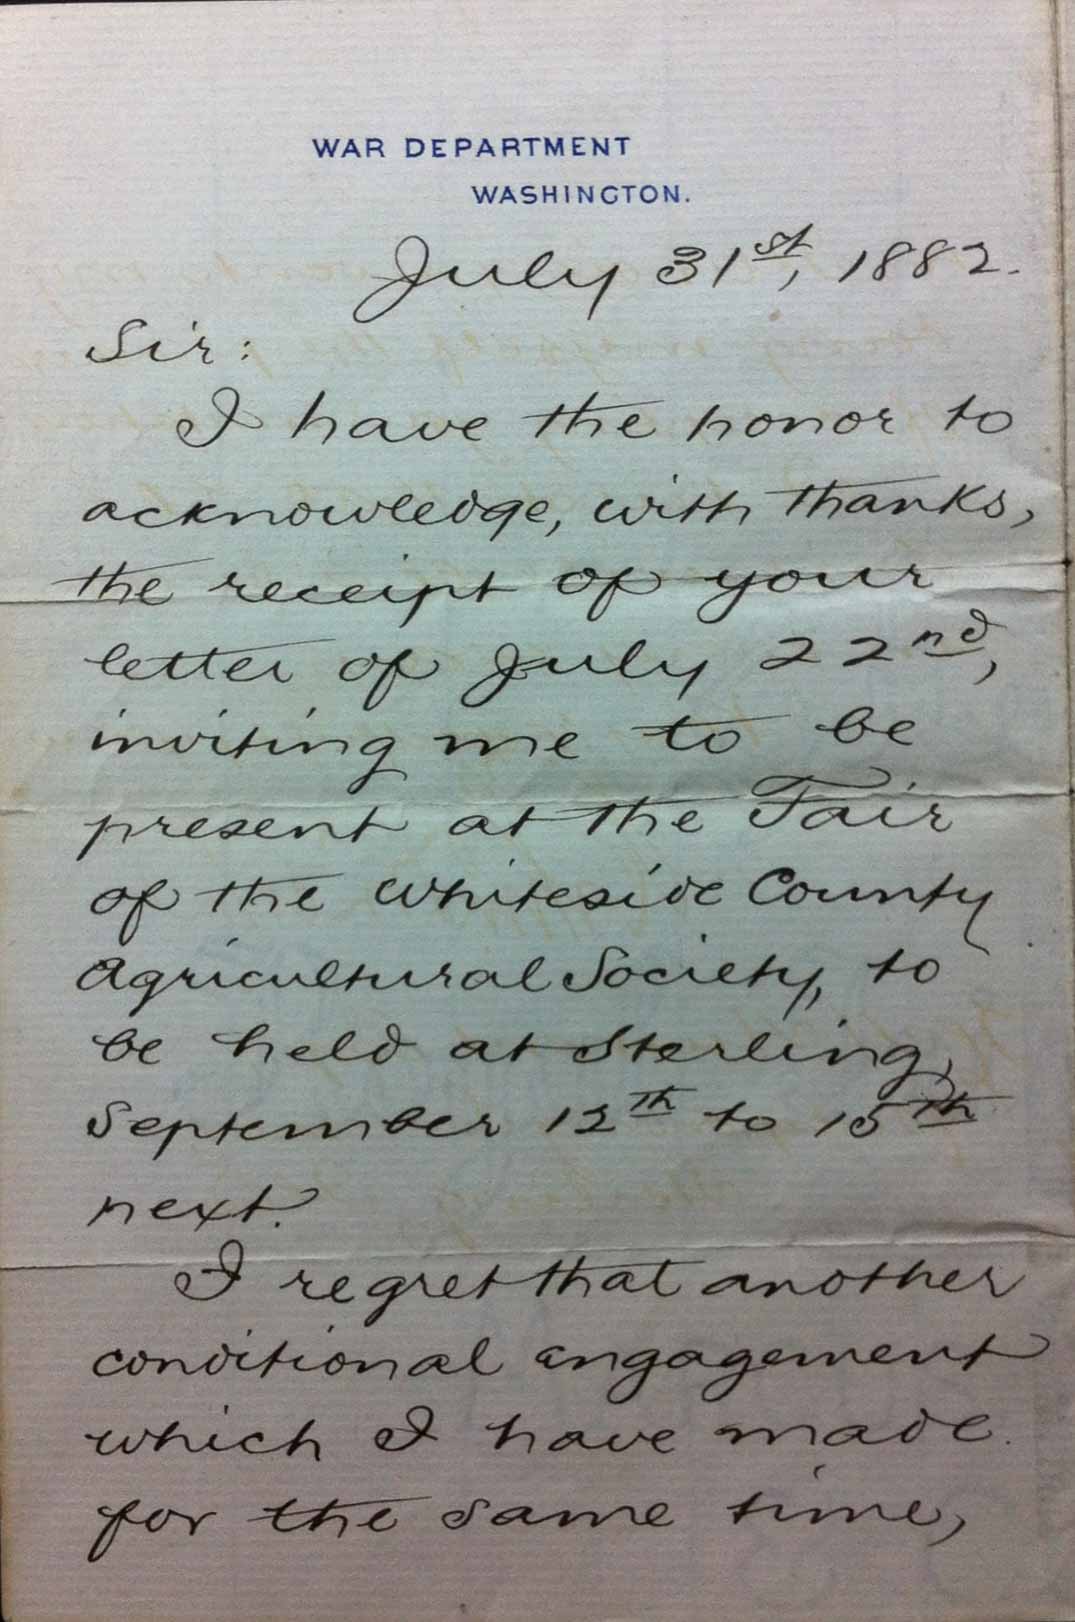 WAR DEPARTMENT
WASHINGTON.
July 31st, 1882.
Sir:
I have the honor to
acknowledge, with thanks,
the receipt of your
letter of July 22nd,
inviting me to be
present at the Fair
of the Whiteside County
Agricultural Society, to
be held at Sterling,
September 12th to 15th
next.
I regret that another
conditional engagement
which I have made
for the same time,